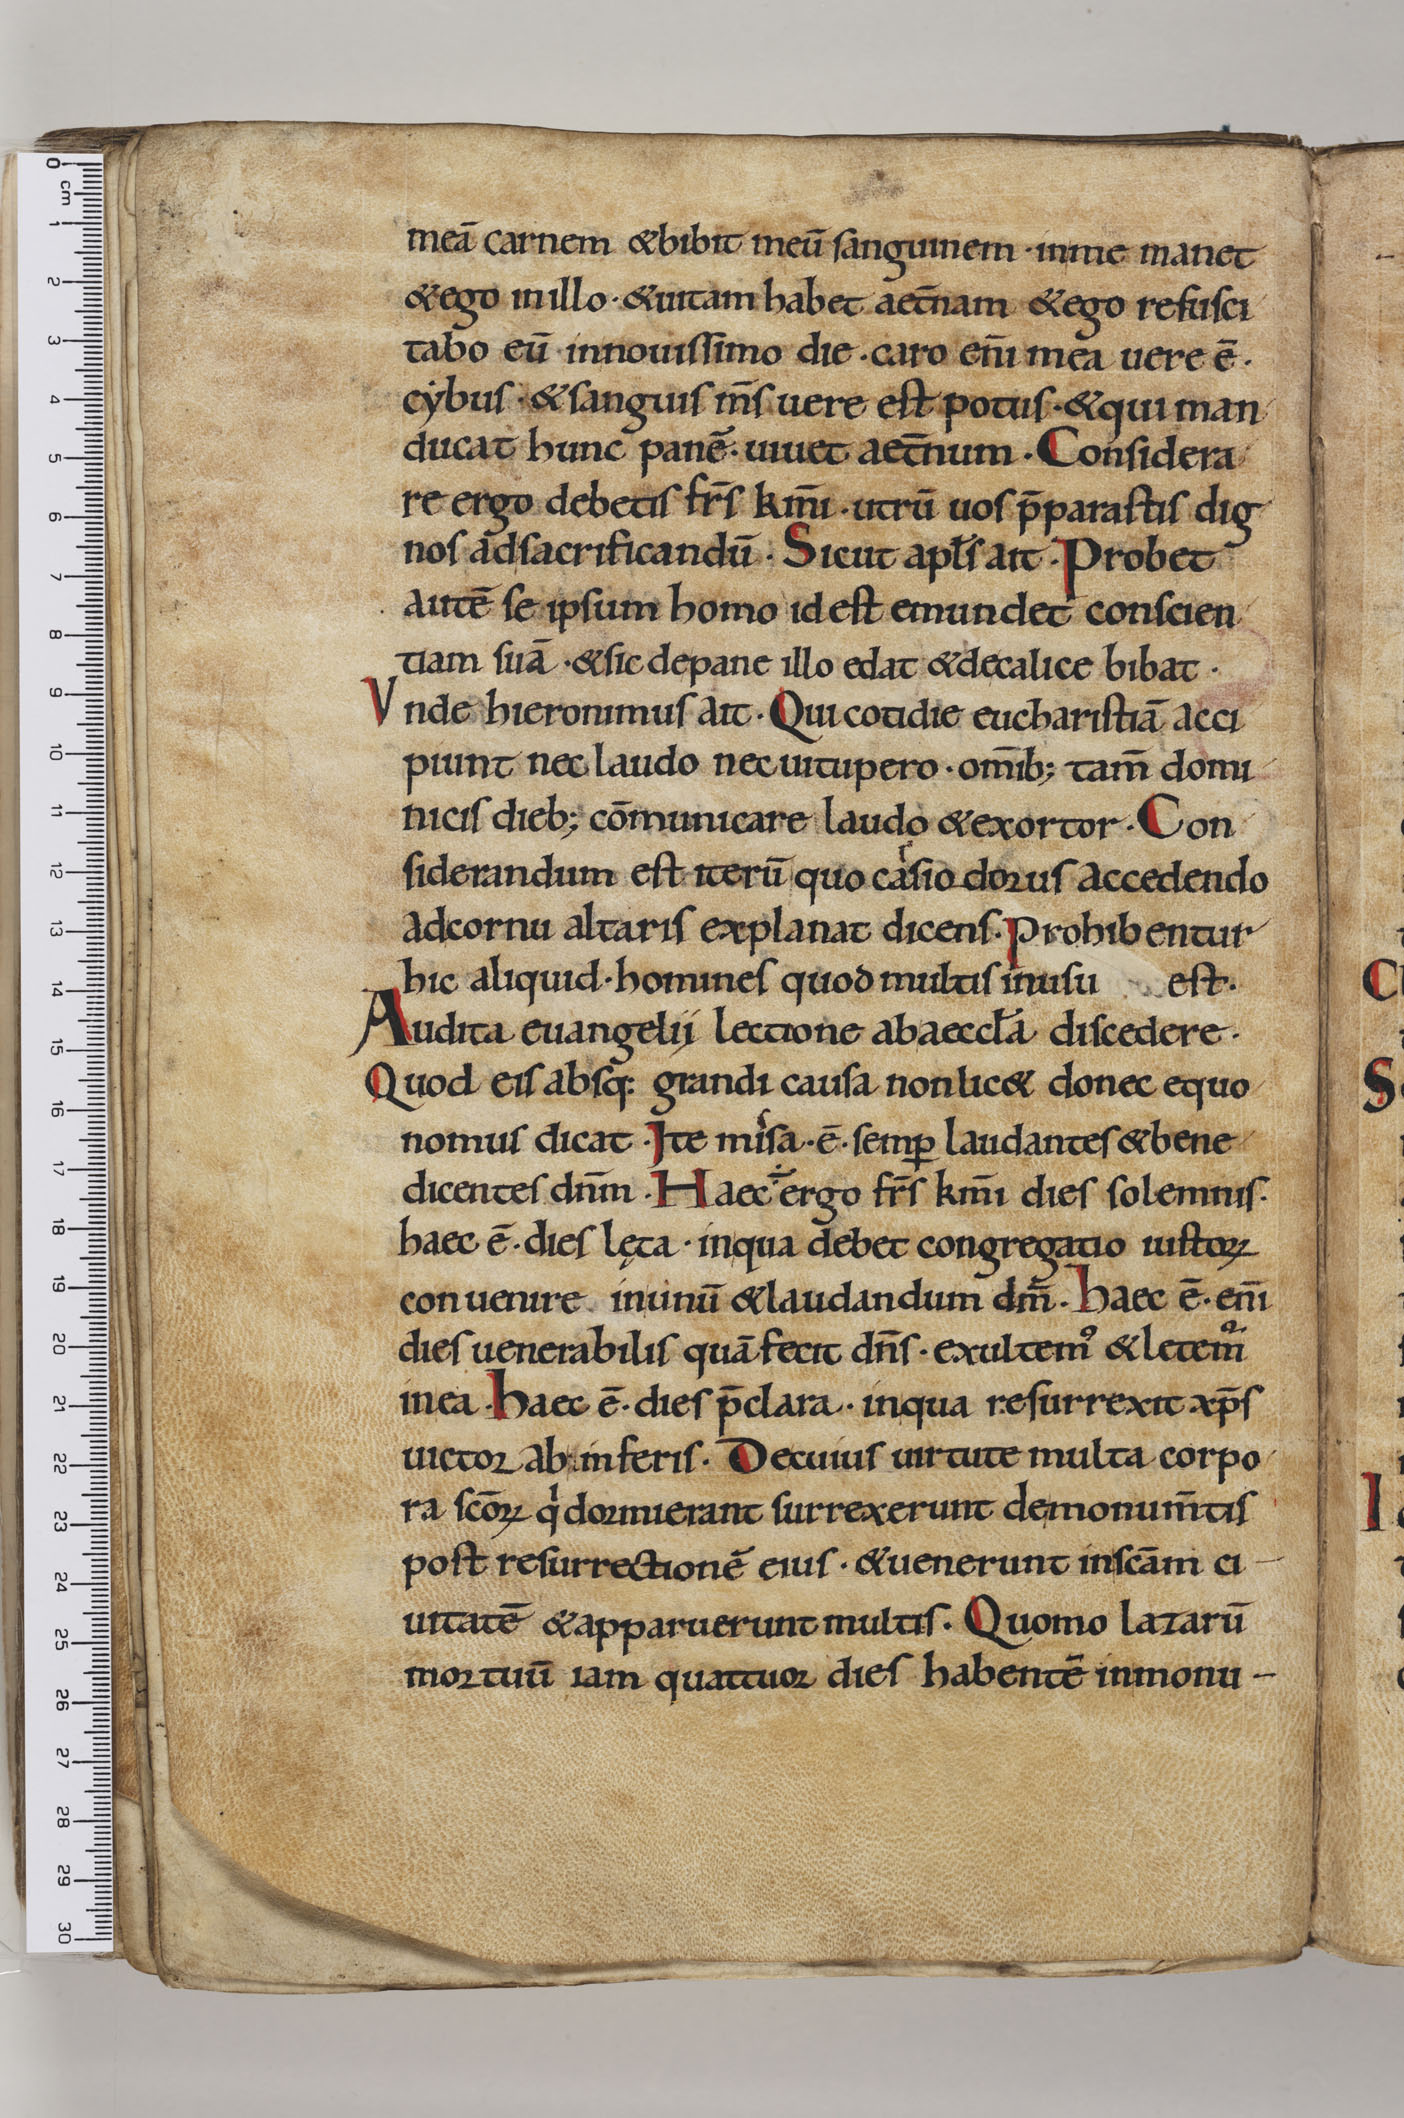 meā carnem &bibit meū sanguinem · inme manet
&ego inillo · &uitam habet aet̄nam &ego resusci
tabo eū innouissimo die · caro eni̅ mea uere ē ·
cẏbus · &sanguis m̄s uere est potus · &qui man
ducat hunc panē · uiuet aet̄num · Considera
re ergo debetis fr̄s km̄i · utrū uos p̄parastis dig
nos adsacrificandū · Sicut apƚs ait · Probet
autē se ipsum homo idest emundet conscien
tiam suā · &sic depane illo edat &decalice bibat ·
Vnde hieronimus ait · Qui cotidie eucharistiā acci
piunt nec laudo nec uitupero · om̄ib; tam̄ domi
nicis dieb; cōmunicare laudo &exortor · Con
siderandum est iterū quo casiodorus accedendo
adcornu altaris explanat dicens · Prohibentur
hic aliquid · homines quod multis inusu est ·
Audita euangelij lectione abaeccƚa discedere ·
Quod eis absq: grandi causa nonlic& donec equo
nomus dicat · Ite misa · ē · semꝑ laudantes &bene
dicentes dn̄m · Haec ÷ ergo fr̄s km̄i dies solemnis ·
haec ē · dies lęta · inqua debet congregatio iustoꝝ
conuenire inunū &laudandum dm̄ · haec ē · eni̅
dies uenerabilis quā fecit dn̄s · exultemꝰ &letemꝰ
inea · haec ē · dies p̄clara · inqua resurrexit xp̄s
uictor ab inferis · Decuius uirtute multa corpo
ra scōꝝ qͥ dormierant surrexerunt demonum̄tis
post resurrectionē eius · &uenerunt inscām ci
uitatē &apparuerunt multis · Quomo lazarū
mortuū iam quattuor dies habentē inmonu –